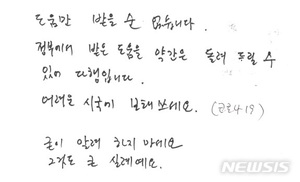 도움만 받을 순 없습니다.
정부에서 받은 도움을 약간은 돌려 드릴 수
있어 다행입니다.
어려운 시국에 보태 쓰세요. (코로나19)
굳이 알려 하지 마세요
그것도 큰 실례예요.
NEWSIS